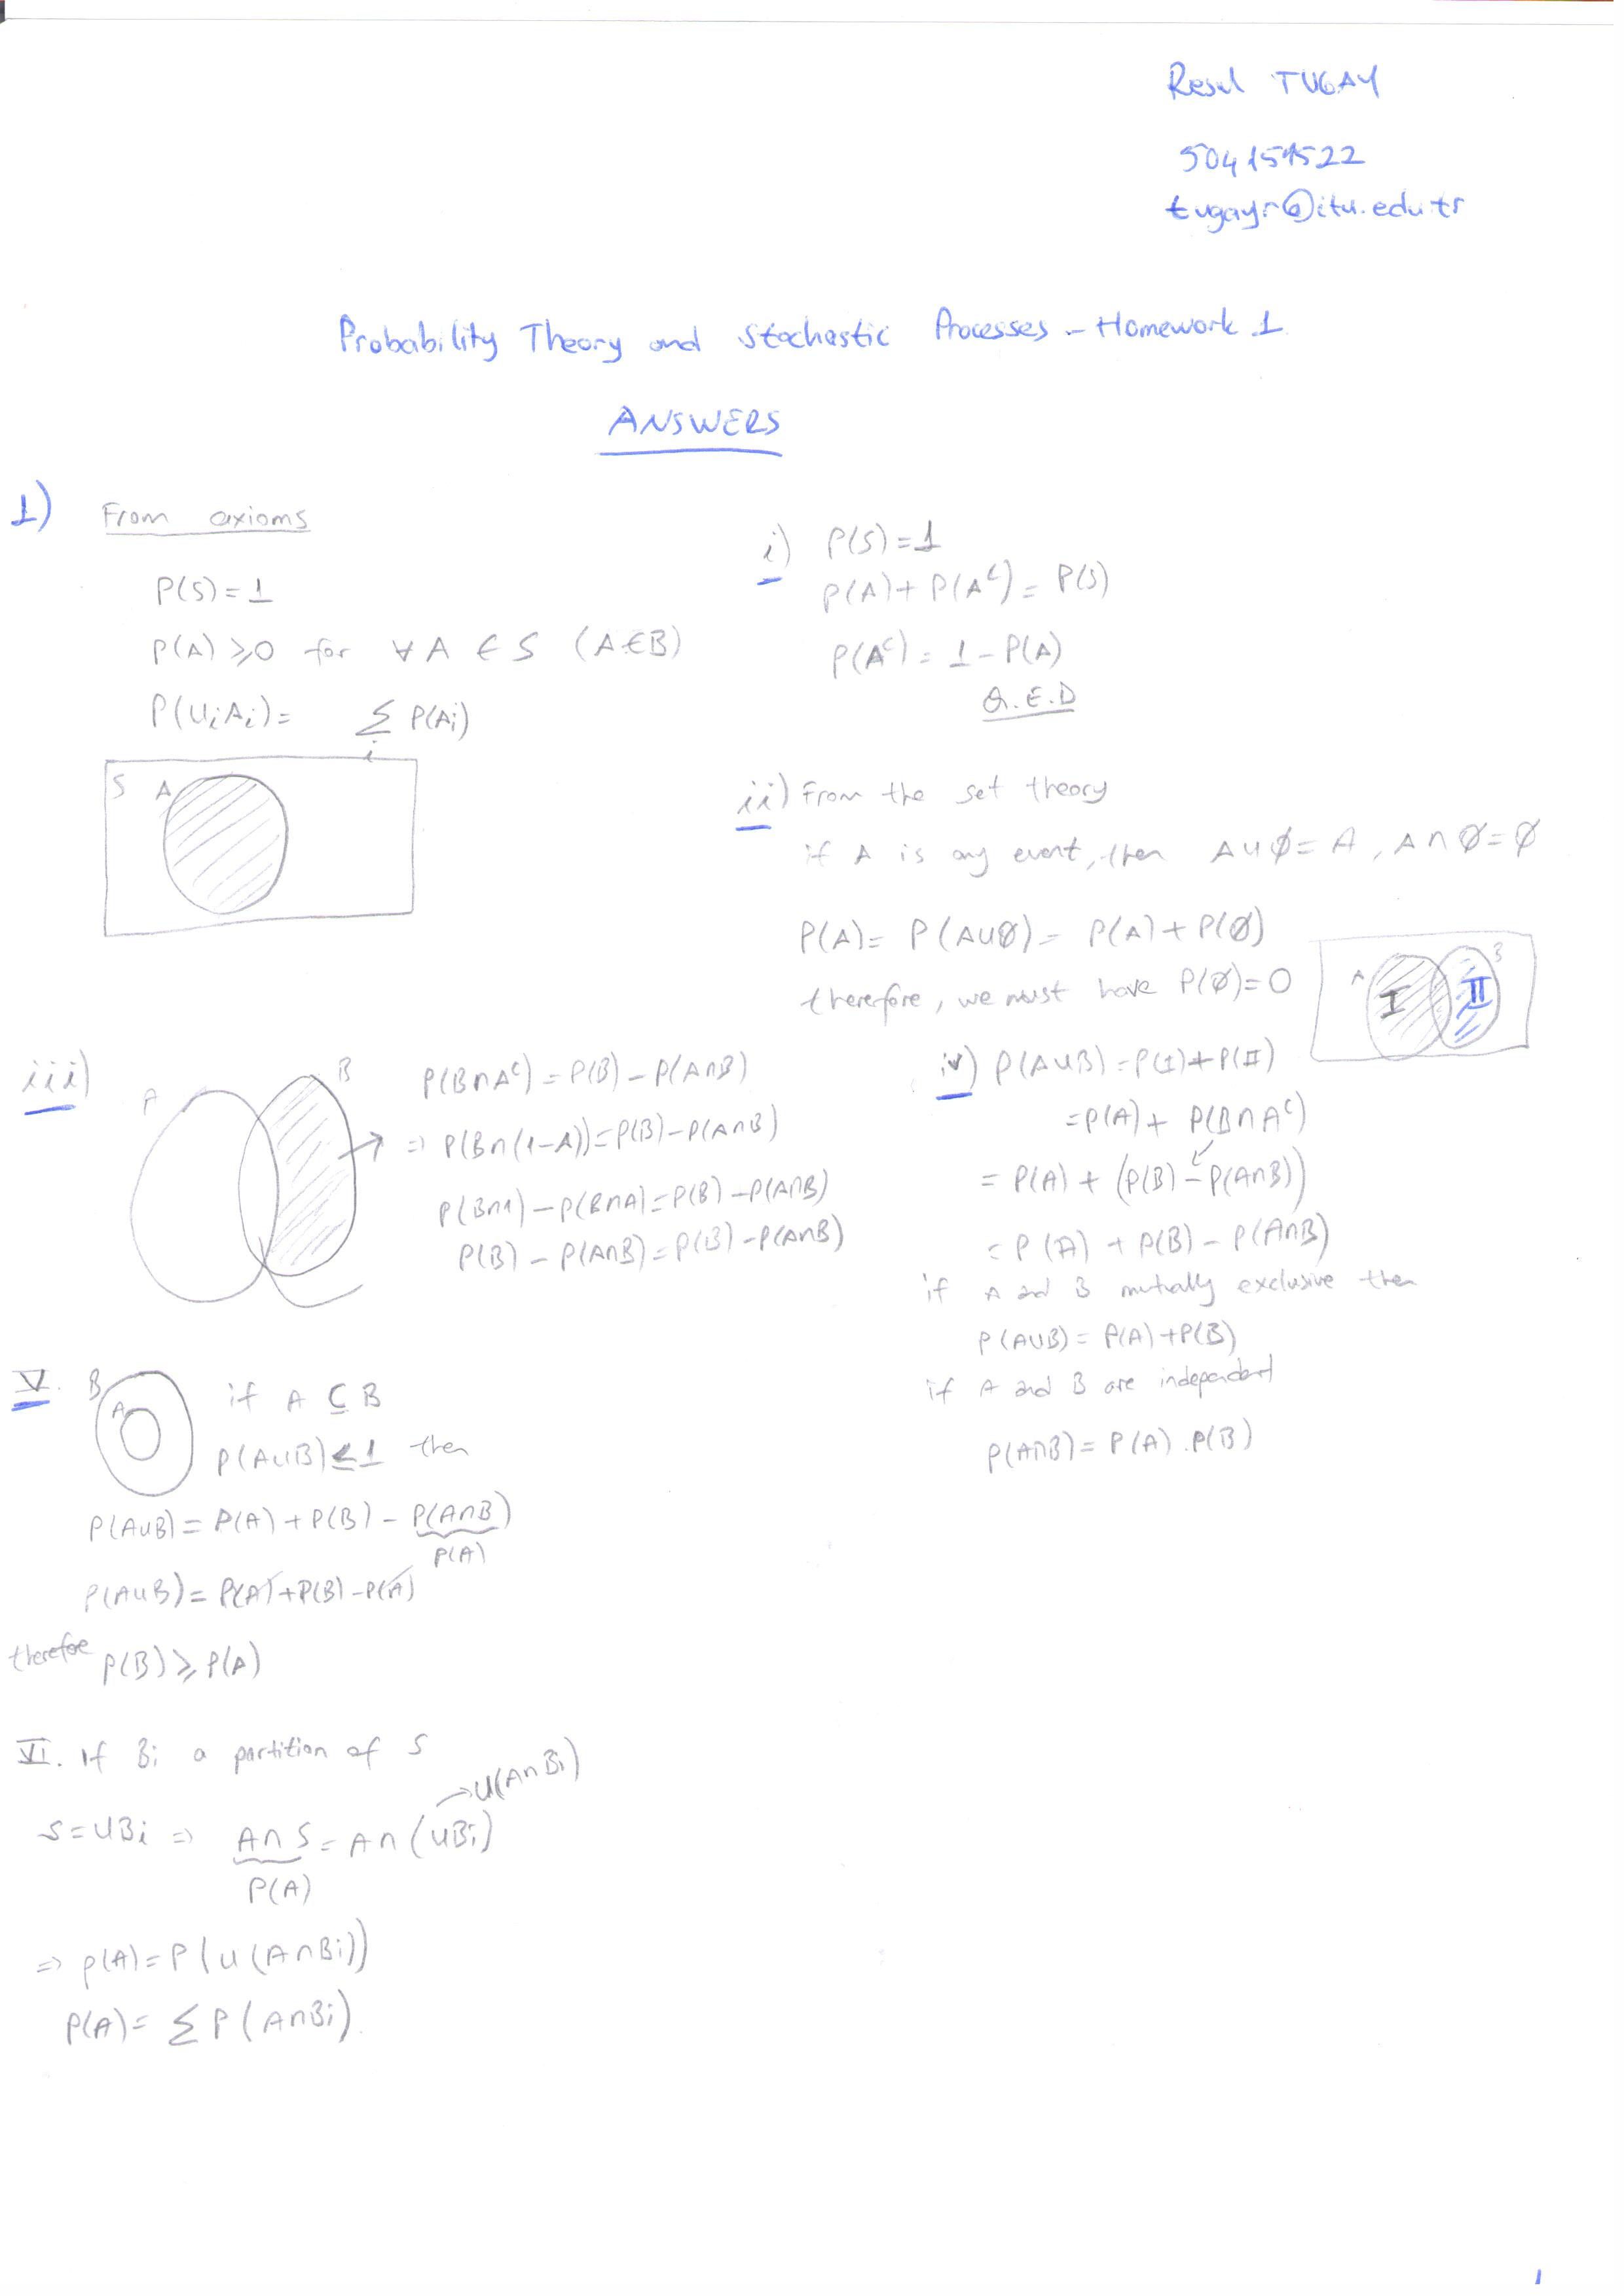 Resul TUGAY
504151522
tugayr@itu.edu.tr
Probability Theory and Stochastic Processes - Homework 1
ANSWERS
1) From axioms
P(S)=1
P(A)≥0 for ∀A ∈ S (A∈B)
P(∪iAi)= Σ P(Ai)
i
S A
i) P(S)=1
P(A)+P(Aᶜ)=P(S)
P(Aᶜ)=1-P(A)
Q.E.D
ii) From the set theory
if A is any event, then A∪∅=A, A∩∅=∅
P(A)= P(A∪∅)= P(A)+P(∅)
therefore, we must have P(∅)=0
A I II B
iii) A B
P(B∩Aᶜ)=P(B)-P(A∩B)
⇒ P(B∩(1-A))=P(B)-P(A∩B)
P(B∩1)-P(B∩A)=P(B)-P(A∩B)
P(B)-P(A∩B)=P(B)-P(A∩B)
iv) P(A∪B)=P(I)+P(II)
=P(A)+ P(B∩Aᶜ)
= P(A)+(P(B)-P(A∩B))
= P(A)+P(B)-P(A∩B)
if A and B mutually exclusive then
P(A∪B)= P(A)+P(B)
if A and B are independent
P(A∩B)= P(A).P(B)
V. B A if A ⊆ B
P(A∪B)≤1 then
P(A∪B)= P(A)+P(B)-P(A∩B)
P(A)
P(A∪B)= P(A)+P(B)-P(A)
therefore P(B)≥P(A)
VI. If Bi a partition of S
→∪(A∩Bi)
S=∪Bi ⇒ A∩S=A∩(∪Bi)
P(A)
⇒ P(A)=P(∪(A∩Bi))
P(A)= ΣP(A∩Bi)
1